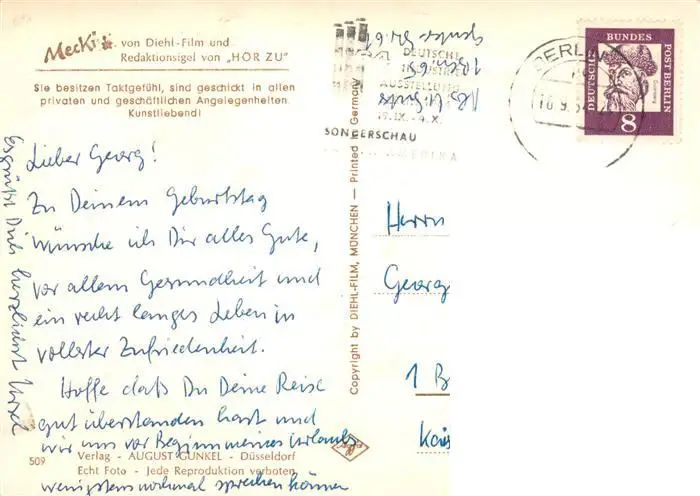 Mecki
von Diehl-Film und
Redaktionsigel von "HÖR ZU"
Sie besitzen Taktgefühl, sind geschickt in allen
privaten und geschäftlichen Angelegenheiten.
Kunstliebend!
Lieber Georg!
Zu Deinem Geburtstag
wünsche ich Dir alles Gute,
vor allem Gesundheit und
ein recht langes Leben in
vollster Zufriedenheit.
Hoffe daß Du Deine Reise
gut überstanden hast und
wir uns vor Beginn meines Urlaubs
wenigstens nochmal sprechen können
Es grüßt Dich herzlichst Ursel
509
Verlag - AUGUST GUNKEL - Düsseldorf
Echt Foto - Jede Reproduktion verboten
Copyright by DIEHL-FILM, MÜNCHEN — Printed in Germany
DEUTSCHE
INDUSTRIE
AUSSTELLUNG
SONDERSCHAU
BERLIN
DEUTSCHE BUNDESPOST BERLIN
8
Herrn
Georg
1 B
Kais